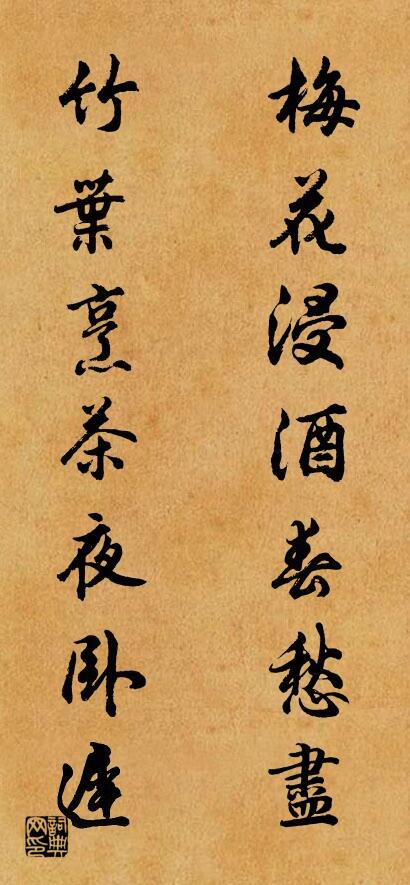 梅花浸酒春愁盡
竹葉烹茶夜卧遲
詞典網印